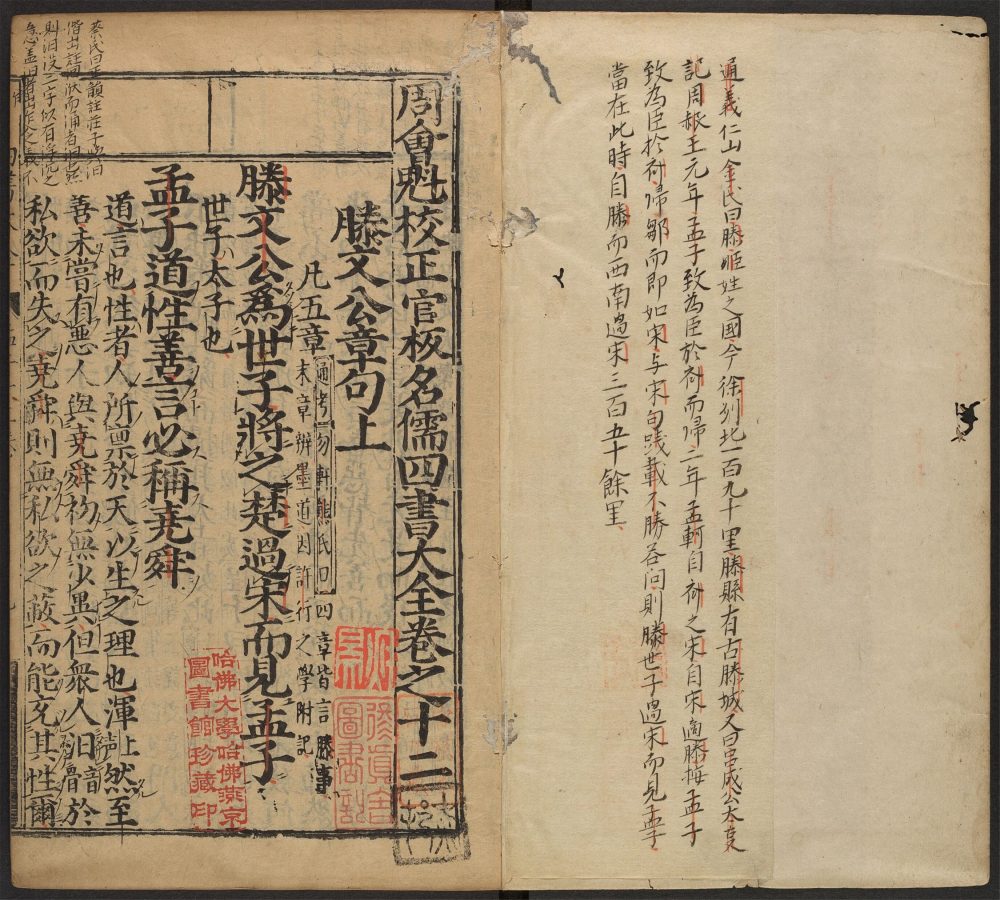 通義仁山金氏曰滕姬姓之國今徐州北一百九十里滕縣有古滕城又曰
記周赧王元年孟子致為臣於齊而歸二年孟軻自齊之宋自宋適滕按孟子
致為臣於齊歸鄒而即如宋与宋句踐載不勝荅问則滕世子過宋而見孟子
當在此時自滕而西南過宋三百五十餘里
周會魁校正官板名儒四書大全卷之十二
滕文公章句上
凡五章
通考勿軒熊氏曰四章皆言滕事
末章辨墨道因許行之學附記
滕文公爲世子將之楚過宋而見孟子
世子太子也
孟子道性善言必稱堯舜
道言也性者人所禀於天以生之理也渾上聲然至
善未嘗有惡人與堯舜初無少異但衆人汩音骨於
私欲而失之堯舜則無私欲之蔽而能充其性爾
蔡氏曰
圖書記
哈佛大學哈佛燕京
圖書館珍藏印